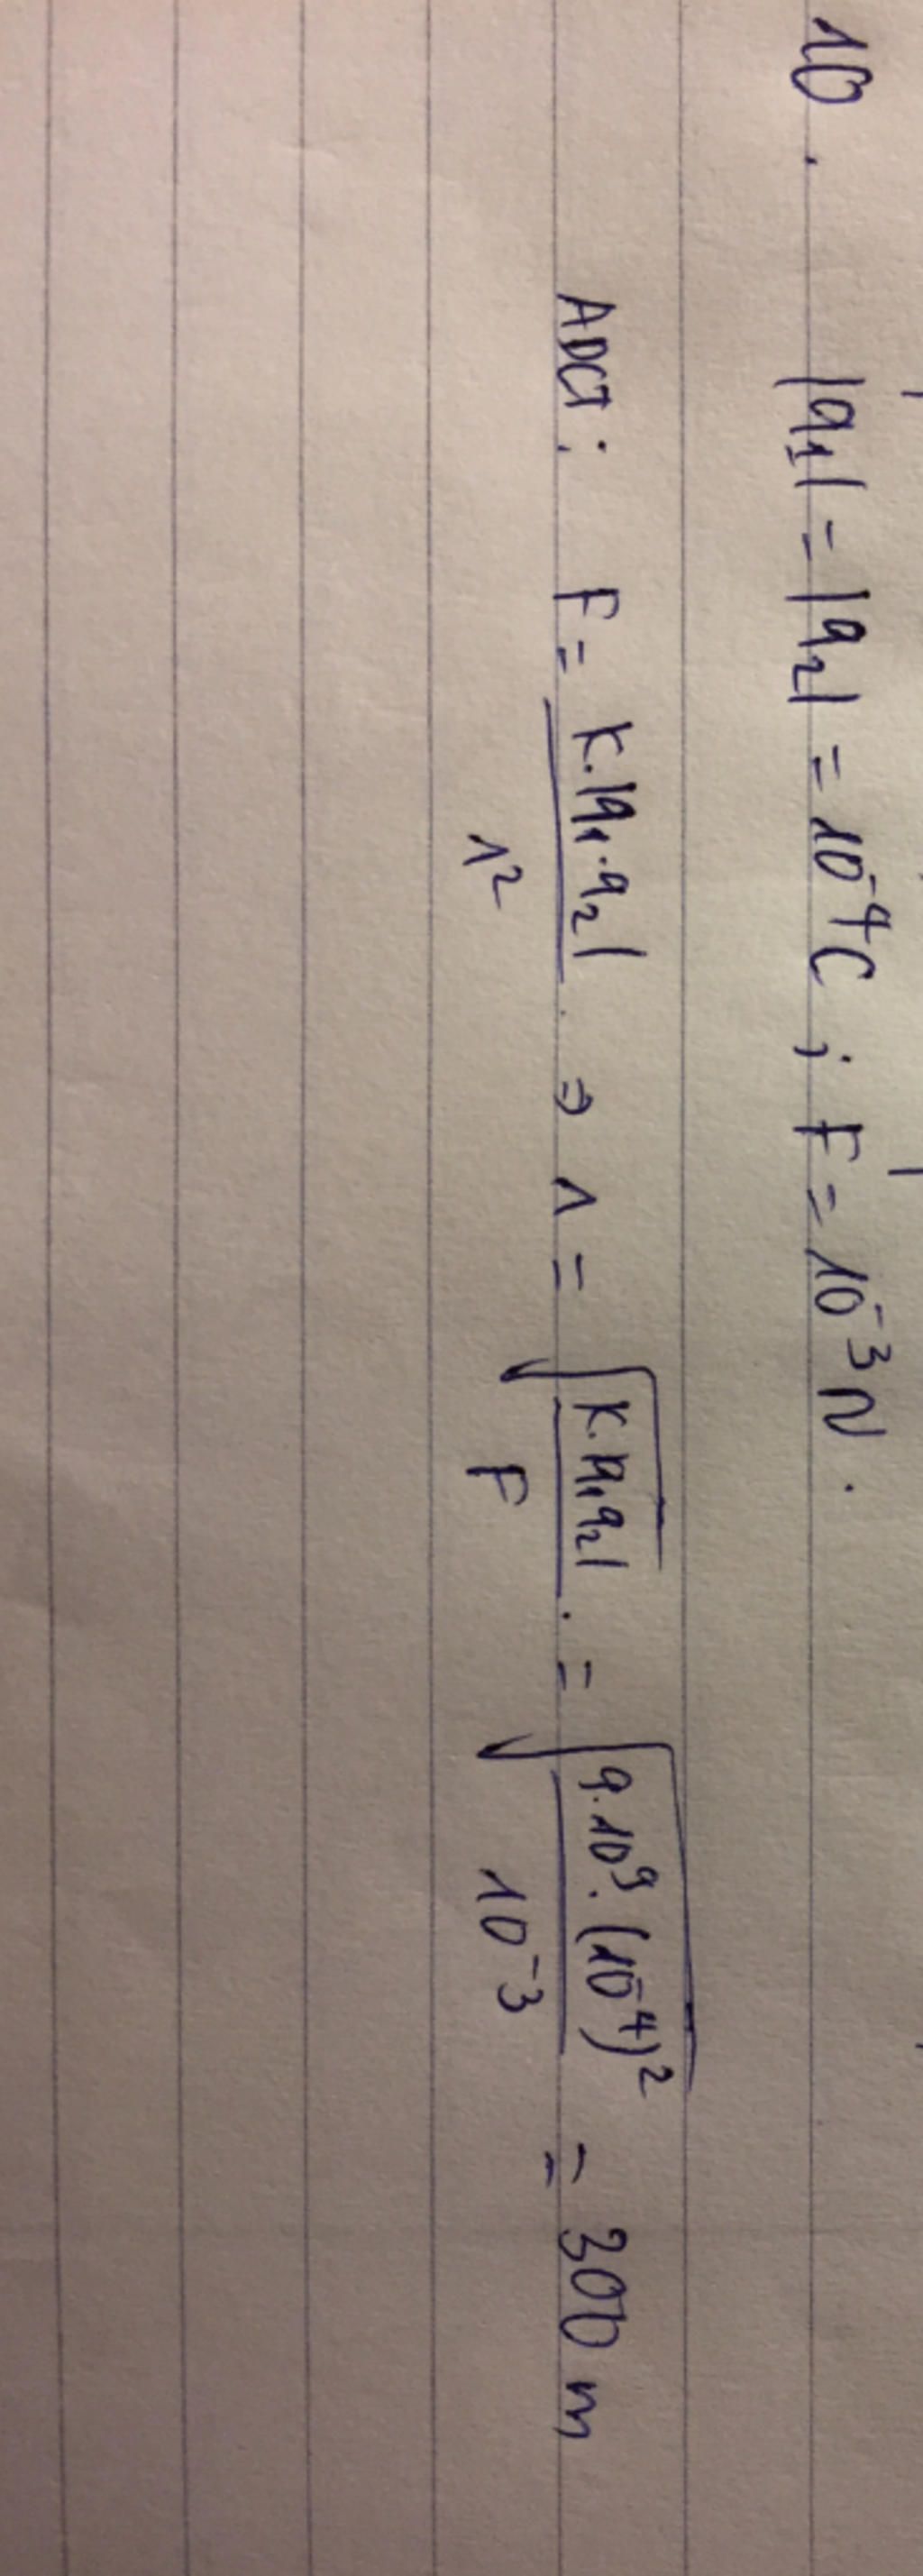 10. |q₁| = |q₂| = 10⁻⁴C ; F = 10⁻³N.
ADCT: F = K.|q₁.q₂| / r² ⇒ r = √(K.|q₁q₂| / F) = √(9.10⁹.(10⁻⁴)² / 10⁻³) = 300 m